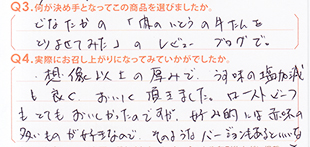 Q3.何が決め手となってこの商品を選びましたか。
どなたかの「肉のいとうの牛たんを
とりよせてみた」のレビューブログで。
Q4.実際にお召し上がりになってみていかがでしたか。
・想像以上の厚みで、うま味の塩加減
も良く、おいしく頂きました。ローストビーフ
もとてもおいしかったのですが、好み的には赤味の
多いものが好きなので、そのようなバージョンもあるといいな